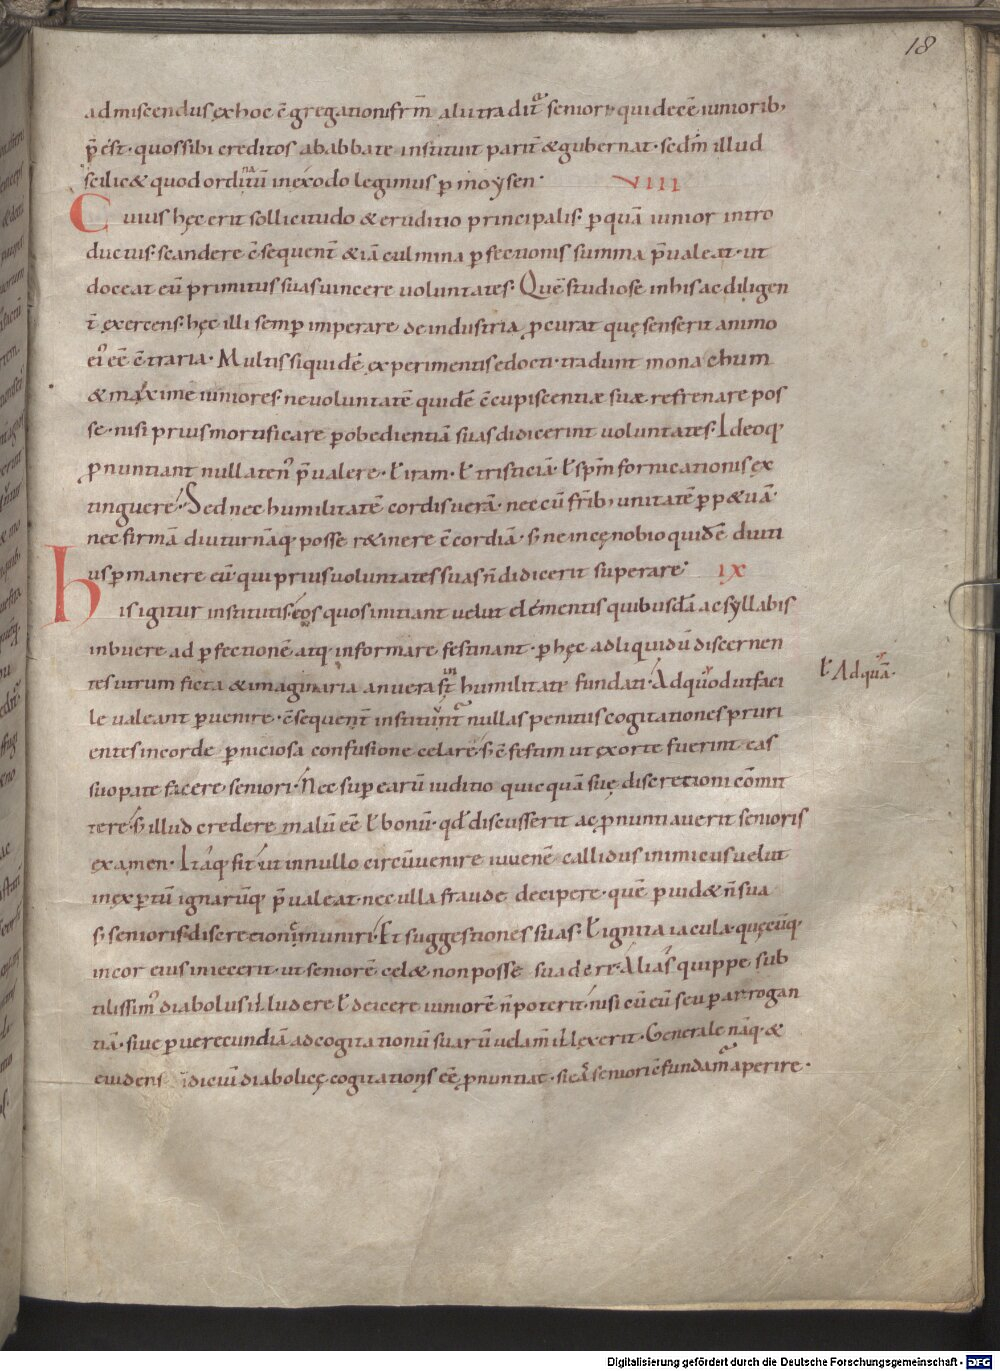 18
admiscendus ex hoc c̄gregationi frm̄ alii tradit᷑ seniori qui decē iuniorib;
p̄ est · quos sibi creditos ab abbate instituit parit̄ & gubernat · secdm̄ illud
scilic& quod ordinatū in exodo legimus p moysen · VIII
Cuius hęc erit sollicitudo & eruditio principalis · p quā iunior intro
ductus · scandere c̄sequent̄ & iā culmina pfectionis summa p̄ualeat · ut
doceat eū primitus suas uincere uoluntates · Quē studiose in his ac diligen
t̄ exercens · hęc illi semp imperare de industria ꝓcurat quę senserit animo
ei᾿ eē c̄traria · Multis siquidē experimentis edocti · tradunt monachum
& maxime iuniores · ne uoluntatē quidē c̄cupiscentiæ suæ refrenare pos
se · nisi prius mortificare p obedientiā suas didicerint uoluntates · Ideoq;
ꝓnuntiant nullaten᾿ p̄ualere · ł iram · ł tristiciā · ł spm̄ fornicationis ex
tinguere · Sed nec humilitatē cordis uerā · nec cū frīb; unitatē ppetuā ·
nec firmā diuturnāq; posse r&inere c̄cordiā · s; ne in cęnobio quidē diuti
us pmanere eū qui prius uoluntates suas n̄ didicerit superare · IX
His igitur institutis · eos quos initiant uelut elementis quibusdā ac syllabis
inbuere ad pfectionē atq; informare festinant · p hęc ad liquidū discernen
tes utrum ficta & imaginaria an uera sint humilitate fundati · Ad quod ut faci
le ualeant puenire · c̄sequent̄ instituunt᷑ nullas penitus cogitationes pruri
entes in corde pniciosa confusione celare · s; c̄festim ut exortę fuerint eas
suo patefacere seniori · Nec sup earū iuditio quicquā suę discretioni cōmit
tere · s; illud credere malū eē ł bonū · qd̄ discusserit ac ꝓnuntiauerit senioris
examen · Itāq; fit ut in nullo circūuenire iuuenē callidus inimicus uelut
inexptū ignarūq; p̄ualeat · nec ulla fraude decipere · quē puid& n̄ sua
s; senioris discretione muniri · Et suggestiones suas · ł ignita iacula quęcūq;
in cor eius iniecerit · ut seniorē cel& non posse suadere · Alias quippe sub
tilissim᾿ diabolus illudere ł deicere iuniorē n̄ poterit · nisi cū eū seu p arrogan
tiā · siue p uerecundiā ad cogitationū suarū uelam̄ illexerit · Generale nāq; &
euidens indiciū diabolicę cogitationis eē ꝓnuntiat · si eā seniori c̄fundam᷑ aperire ·
ł Ad quā ·
Digitalisierung gefördert durch die Deutsche Forschungsgemeinschaft - DFG